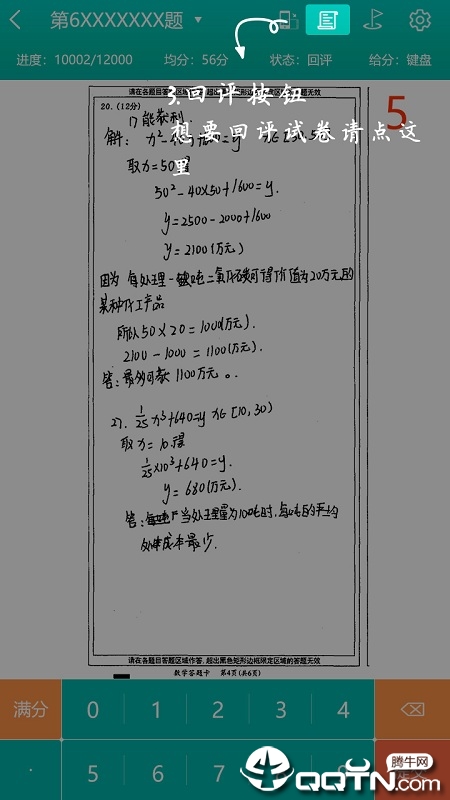 第6XXXXXXX题
进度：10002/12000 均分：56分 状态：回评 给分：键盘
请在各题目答题区域
超出黑色矩形边框限定区域的答题无效
3.回评按钮
想要回评试卷请点这里
5
20.（12分）
1) 能获利.
解：
取x=50得
50²-40×50+1600=y.
y=2500-2000+1600
y=2100(万元)
因为 每处理一吨二氧化碳可得价值为20万元的
某种化工产品
所以 50×20=1000(万元).
2100-1000=1100(万元).
答：最多可获1100万元。.
27. 1/25 x³+640=y x∈[10,30)
取x=10.得
1/25×10³+640=y.
y=680(万元).
答：当处理量为100吨时,每吨的平均
处理成本最少.
请在各题目答题区域作答，超出黑色矩形边框限定区域的答题无效
数学答题卡 第4页(共6页)
满分 0 1 2 3 4
· 5 6 7
腾牛网
QQTN.com